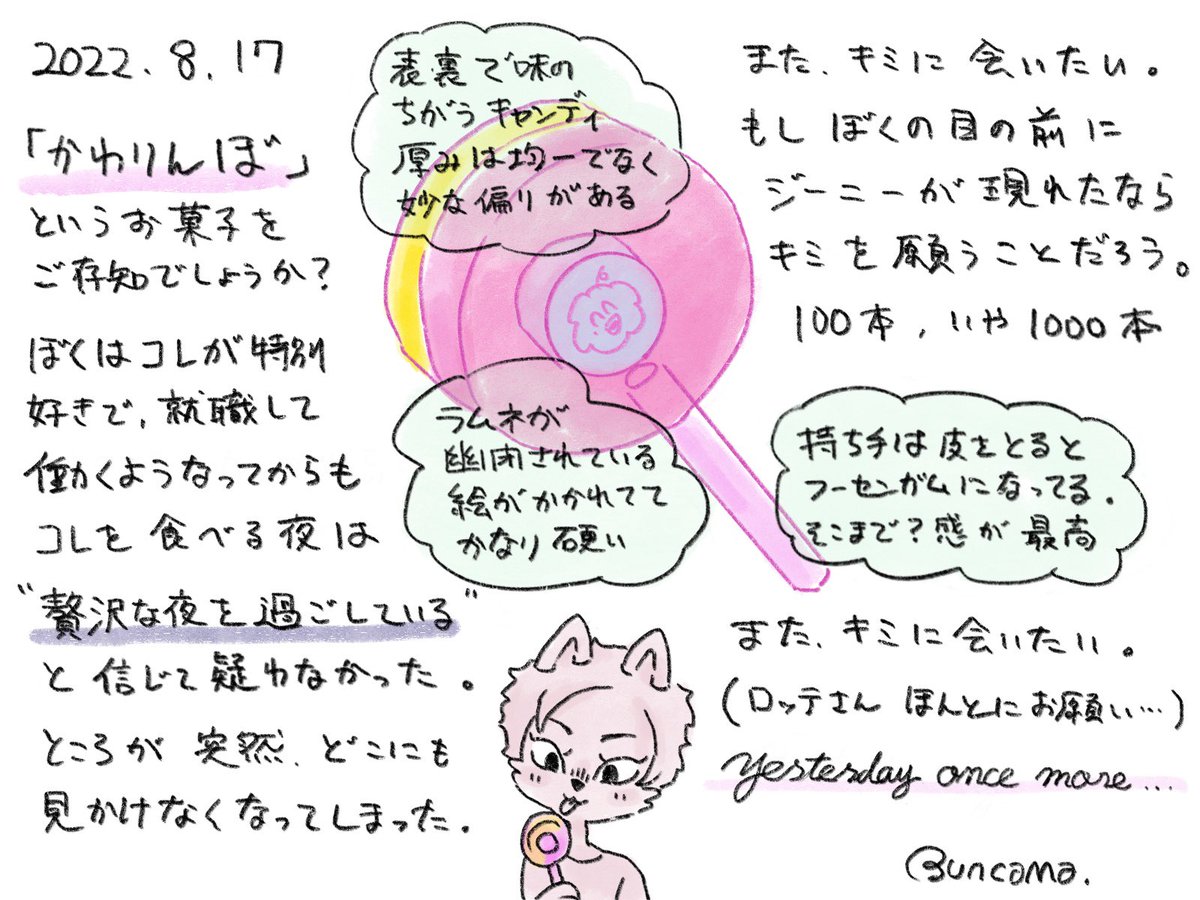 2022.8.17
「かわりんぼ」
というお菓子を
ご存知でしょうか?
ぼくはコレが特別
好きで、就職して
働くようなってからも
コレを食べる夜は
"贅沢な夜を過ごしている"
と信じて疑わなかった。
ところが突然、どこにも
見かけなくなってしまった。
表裏で味の
ちがうキャンディ
厚みは均一でなく
妙な偏りがある
ラムネが
幽閉されている
絵がかかれてて
かなり硬い
また、キミに会いたい。
もしぼくの目の前に
ジーニーが現れたなら
キミを願うことだろう。
100本、いや1000本
持ち手は皮をとると
フーセンガムになってる.
そこまで?感が最高
また、キミに会いたい。
(ロッテさん ほんとにお願い…)
Yesterday once more...
Buncama.